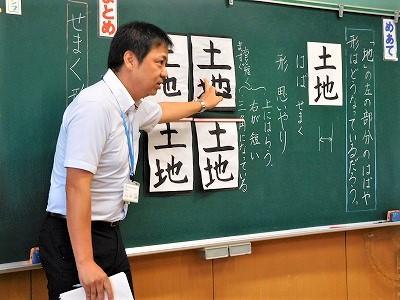 めあて
「地」の左の部分のはばや
形はどうなっているだろう。
土地
はば せまく
形 思いやり
上にはらう。
右が短い
三角になっている
土地
土地
土地
土地
まとめ
せまく形